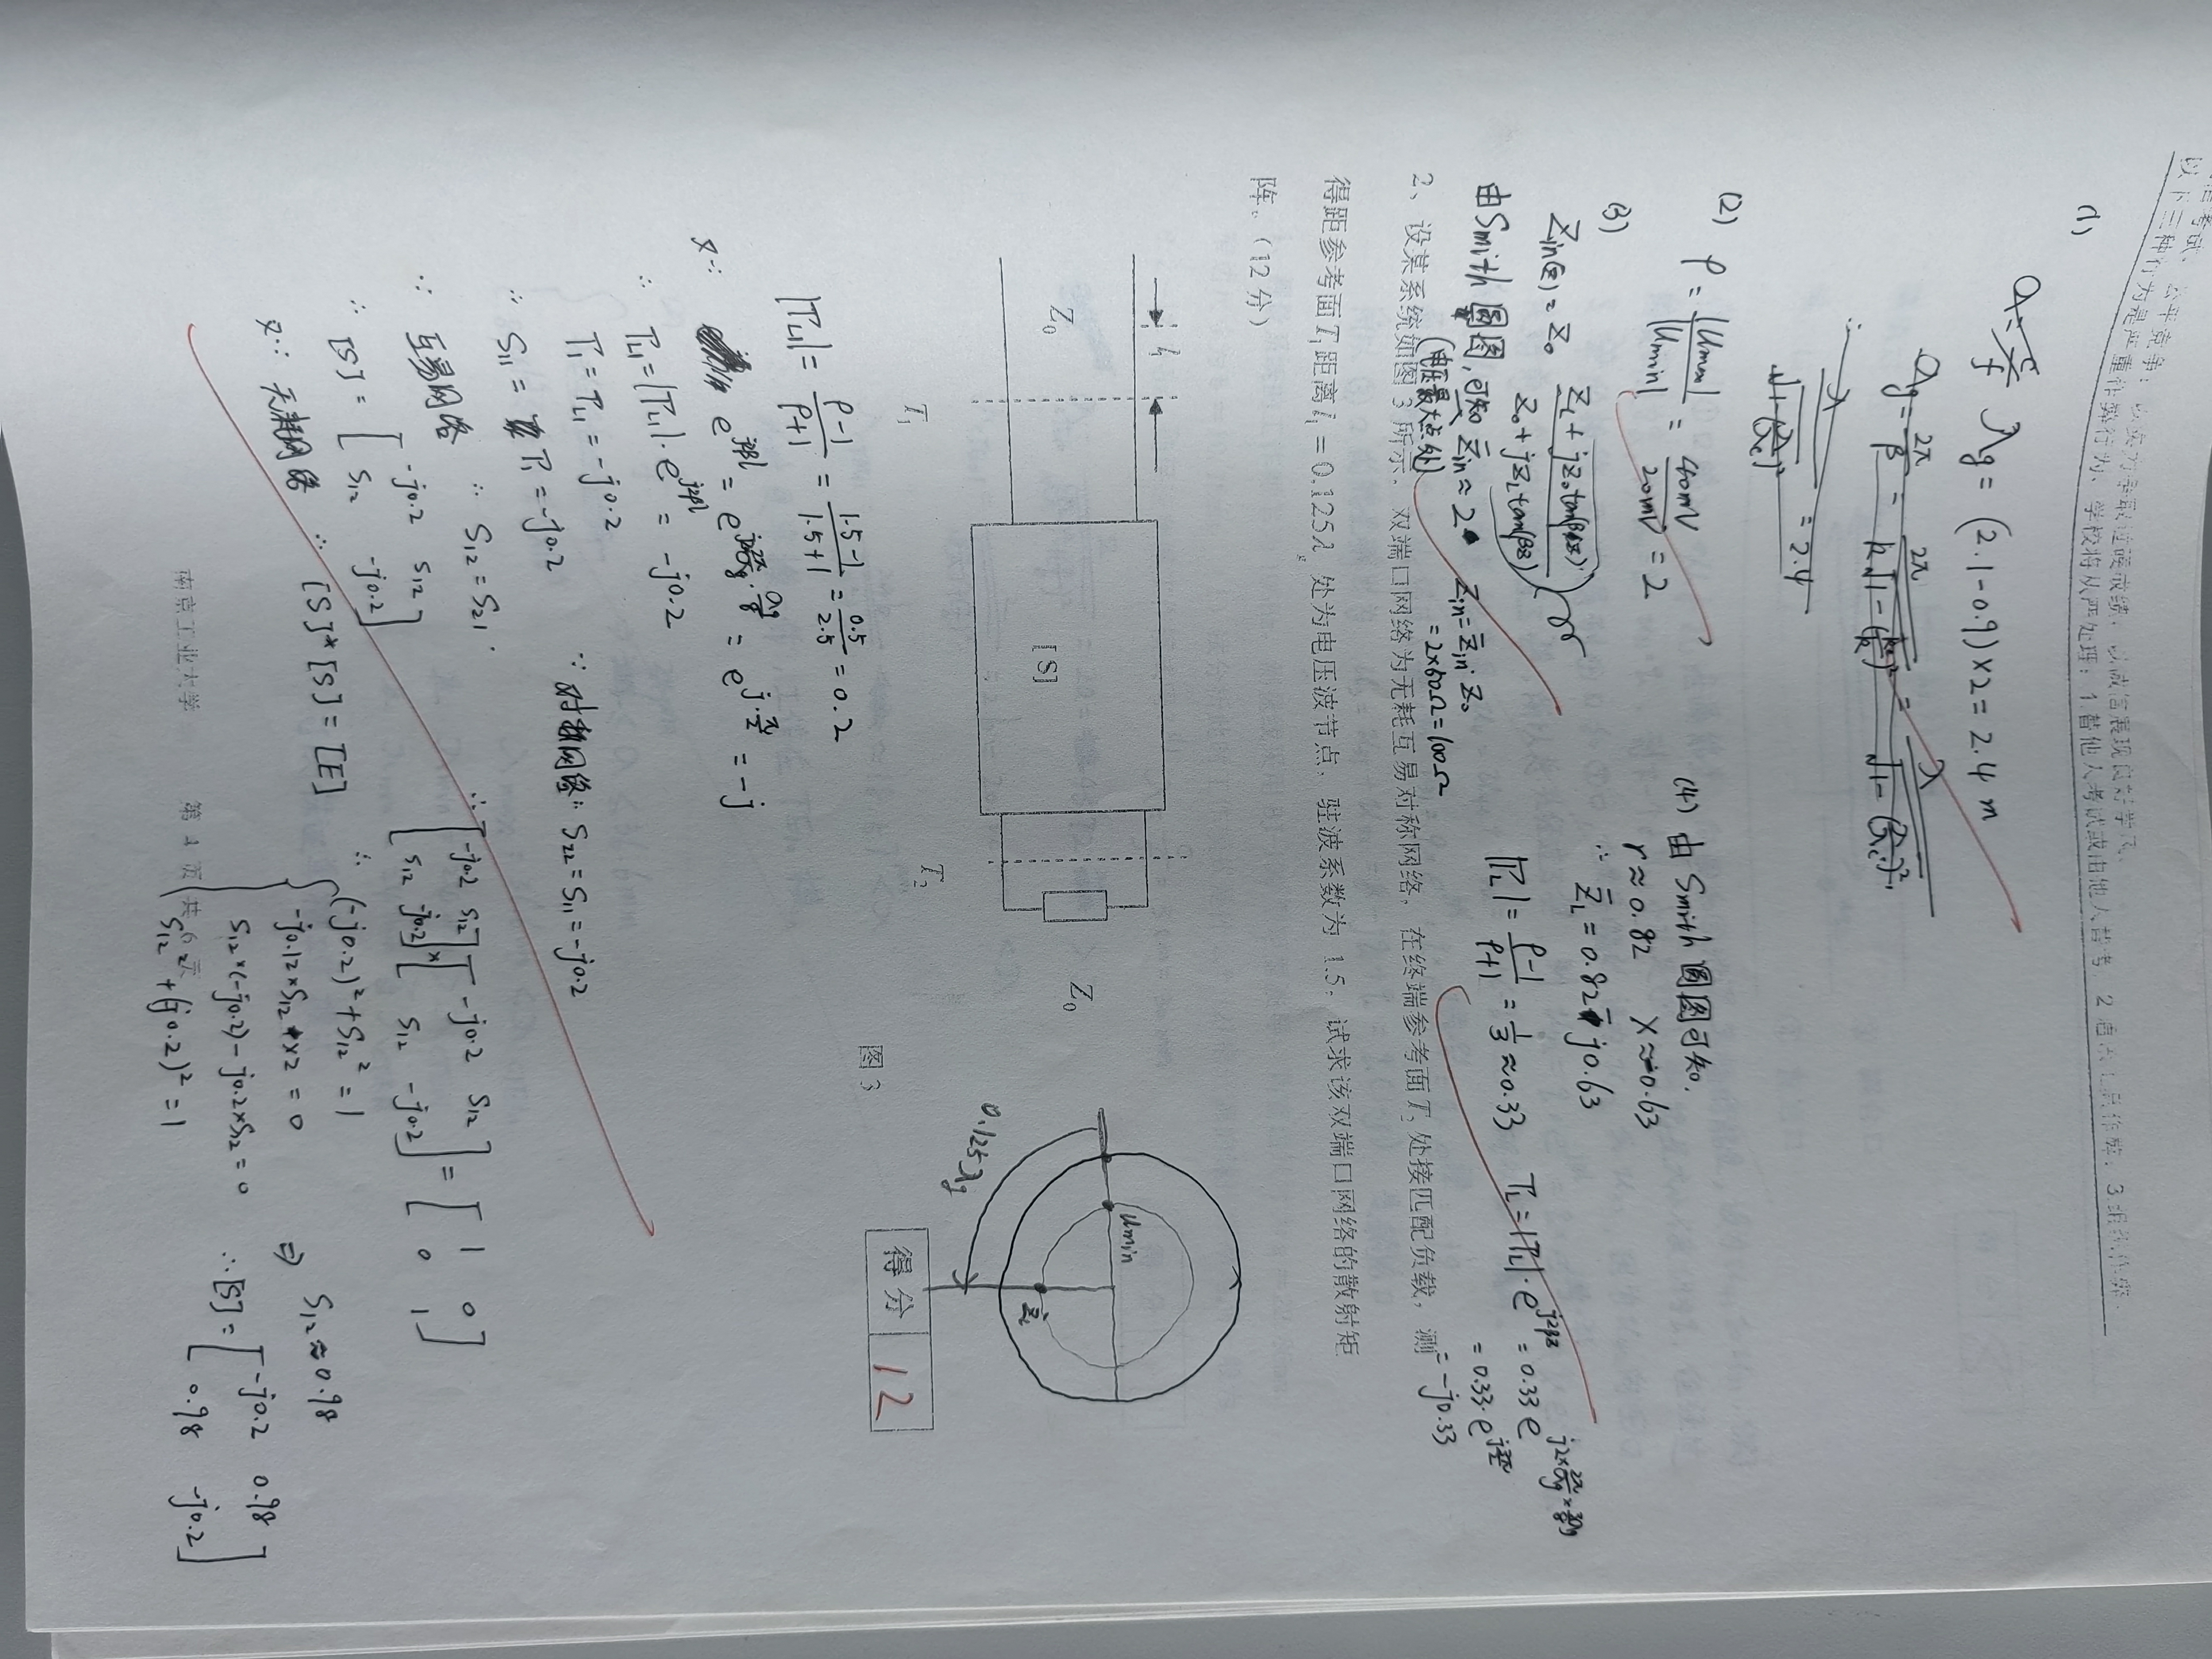 信考试、公平竞争；以实力争取过硬成绩，以诚信展现良好学风。
以下三种行为是严重作弊行为、学校将从严处理：1.替他人考试或由他人替考 2 通讯工具作弊；3.组织作弊。
(1)
λ = c/f λg = (2.1-0.9)×2 = 2.4 m
λg = 2π/β = 2π/(k√(1-(kc/k)²)) = λ/√(1-(λ/λc)²)
∴ λ/√(1-(λ/λc)²) = 2.4
(2) ρ = |Umax|/|Umin| = 40mV/20mV = 2
(3)
Zin(z) = Z0 (ZL + jZ0 tan(βz))/(Z0 + jZL tan(βz))
由Smith圆图,可知 Z̄in ≈ 2 Zin = Z̄in·Z0
(电压最大点处) = 2×50Ω = 100Ω
(4) 由Smith圆图可知.
r ≈ 0.82 x ≈ -0.63
∴ Z̄L = 0.82 - j0.63
|ΓL| = (ρ-1)/(ρ+1) = 1/3 ≈ 0.33 ΓL = |ΓL|·e^{j2βz} = 0.33 e^{j2×2π/λg×3λg/8}
= 0.33·e^{j3π/2}
= -j0.33
2、设某系统如图 3 所示，双端口网络为无耗互易对称网络，在终端参考面T₂处接匹配负载，测
得距参考面T₁距离l₁ = 0.125λg 处为电压波节点，驻波系数为 1.5，试求该双端口网络的散射矩
阵。（12 分）
l₁
Z₀
[ S]
Z₀
T₁
T₂
Umin
Z̄L
0.125λg
图 3
得 分 12
|ΓL1| = (ρ-1)/(ρ+1) = (1.5-1)/(1.5+1) = 0.5/2.5 = 0.2
又∵ e^{j2βl} = e^{j2·2π/λg·λg/8} = e^{j·π/2} = -j
∴ ΓL1 = |ΓL1|·e^{j2βl} = -j0.2
Γ1 = ΓL1 = -j0.2
∴ S11 = Γ1 = -j0.2
∵ 对称网络 ∴ S22 = S11 = -j0.2
∵ 互易网络 ∴ S12 = S21
∴ [S] = [-j0.2 S12
S12 -j0.2]
又∵ 无耗网络 ∴ [S]*[S] = [E]
∴ [-j0.2 S12; S12 -j0.2]* [-j0.2 S12; S12 -j0.2] = [1 0; 0 1]
∴ (-j0.2)² + S12² = 1
-j0.12×S12 ×2 = 0
S12×(-j0.2) - j0.2×S12 = 0
S12² + (j0.2)² = 1
⇒ S12 ≈ 0.98
∴ [S] = [-j0.2 0.98
0.98 -j0.2]
南京工业大学 第 4 页 共 6 页